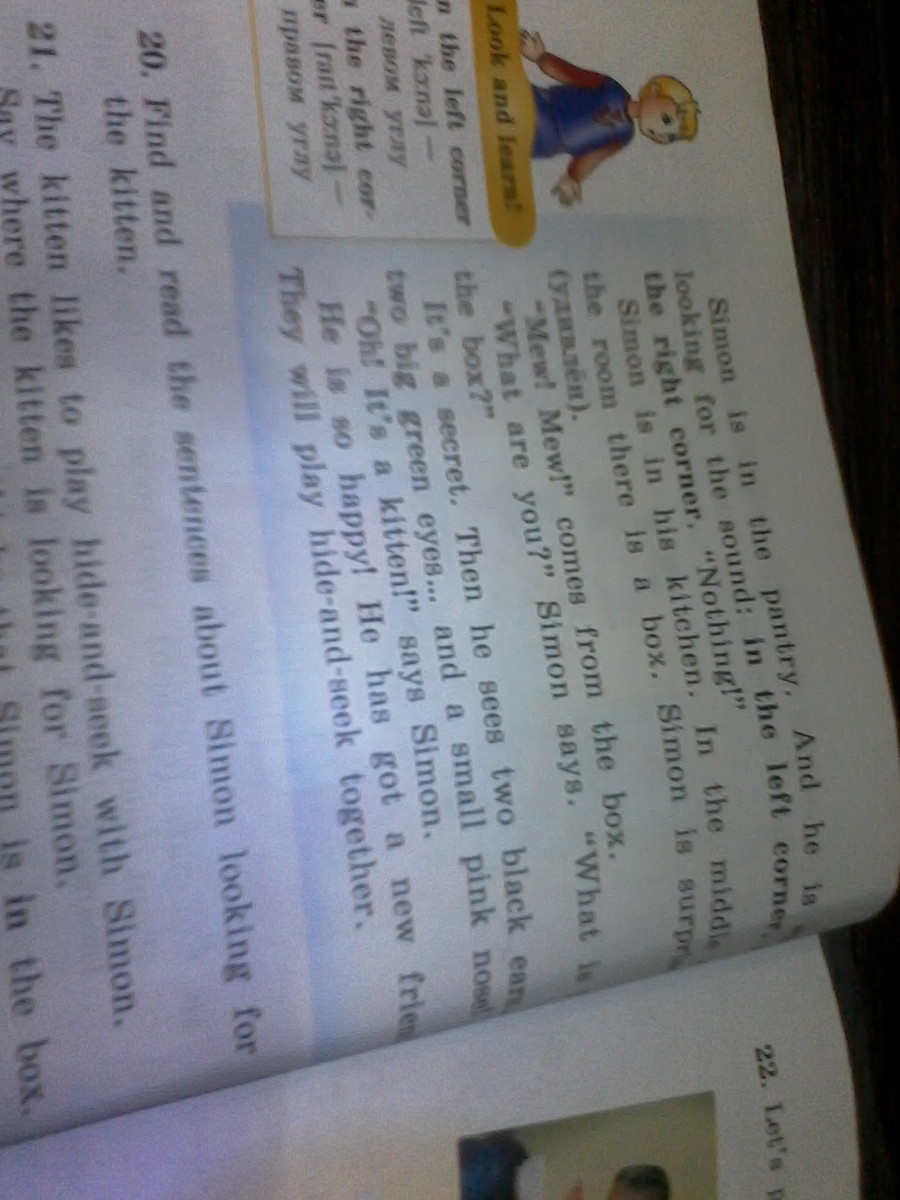 Look and learn!
n the left corner
left 'kɔnə] —
левом углу
the right cor-
er [raıt'kɔnə] —
правом углу
Simon is in the pantry. And he is
looking for the sound: in the left corner,
the right corner. "Nothing!"
Simon is in his kitchen. In the middle
the room there is a box. Simon is surpri
(удивлён).
"Mew! Mew!" comes from the box.
"What are you?" Simon says. "What is
the box?"
It's a secret. Then he sees two black ears
two big green eyes... and a small pink nose!
"Oh! It's a kitten!" says Simon.
He is so happy! He has got a new frien
They will play hide-and-seek together.
20. Find and read the sentences about Simon looking for
the kitten.
21. The kitten likes to play hide-and-seek with Simon.
Say where the kitten is looking for Simon.
that Simon is in the box.
22. Let's p